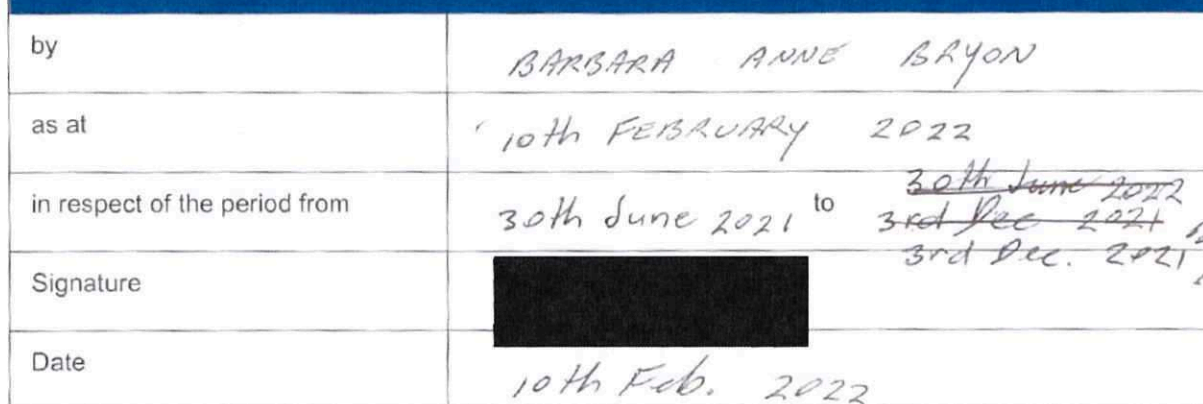 by BARBARA ANNE BRYON
as at 10th FEBRUARY 2022
30th June 2022
in respect of the period from 30th June 2021 to 3rd Dec 2021
3rd Dec. 2021
Signature
Date 10th Feb. 2022